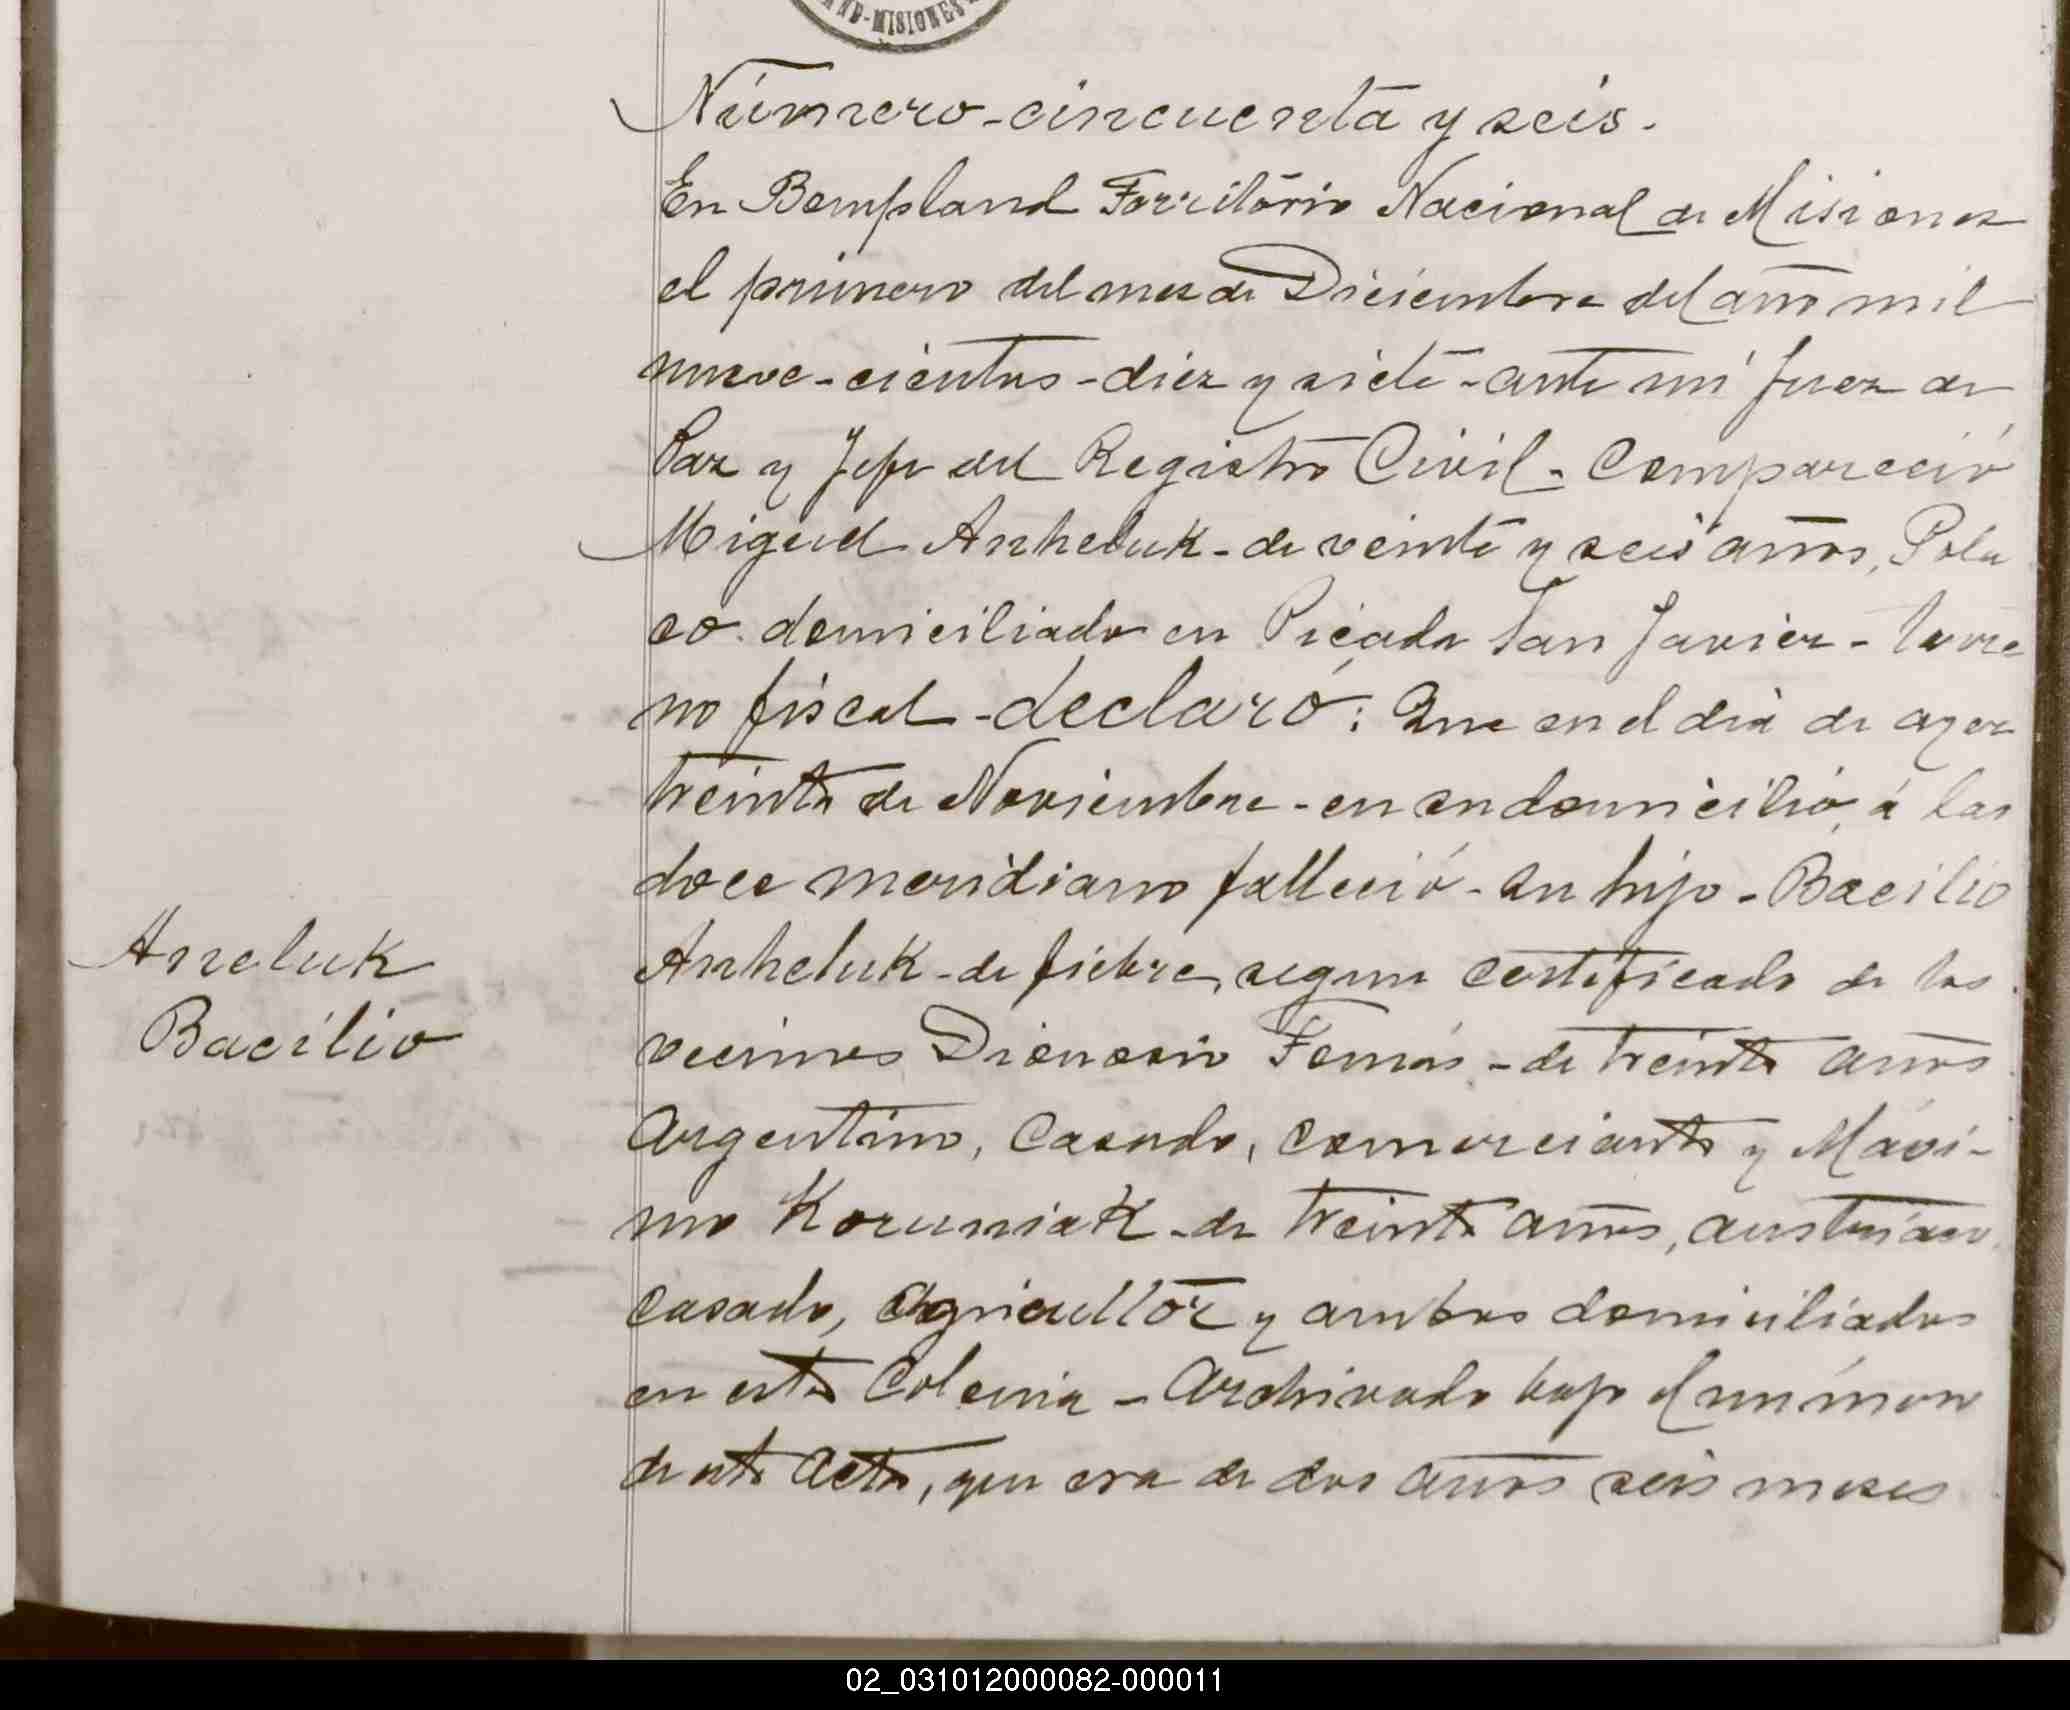 AND-MISIONES
Número-cincuenta y seis.
En Bompland Territorio Nacional de Misiones
el primero del mes de Diciembre del año mil
nueve-cientos-diez y siete-ante mi Juez de
Paz y Jefe del Registro Civil- Compareció
Miguel Anheluk-de veinte y seis años, Pola
co domiciliado en Picada San Javier-terre
no fiscal-declaró: Que en el dia de ayer
treinta de Noviembre-en su domicilio, á las
doce meridiano falleció-su hijo-Bacilio
Anheluk-de fiebre, segun certificado de los
Aneluk
Bacilio
vecinos Dionosio Tomás-de treinta años
Argentino, Casado, comerciante y Máxi-
mo Koruniak-de treinta años, austriaco,
casado, Agricultor y ambos domiciliados
en esta Colonia-Archivado bajo el número
de esta Acta, que era de dos años seis meses
02_031012000082-000011